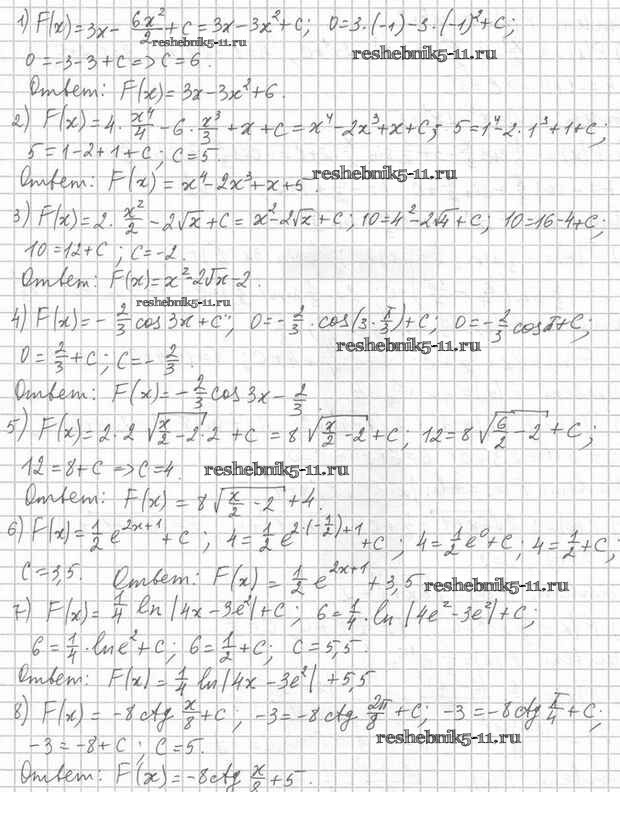 1) F(x) = 3x - 6x²/2 + C = 3x - 3x² + C; 0 = 3·(-1) - 3·(-1)² + C;
reshebnik5-11.ru reshebnik5-11.ru
0 = -3 - 3 + C => C = 6.
Ответ: F(x) = 3x - 3x² + 6.
2) F(x) = 4·x⁴/4 - 6·x³/3 + x + C = x⁴ - 2x³ + x + C; 5 = 1⁴ - 2·1³ + 1 + C;
5 = 1 - 2 + 1 + C; C = 5. reshebnik5-11.ru
Ответ: F(x) = x⁴ - 2x³ + x + 5.
3) F(x) = 2·x²/2 - 2√x + C = x² - 2√x + C; 10 = 4² - 2√4 + C; 10 = 16 - 4 + C;
10 = 12 + C; C = -2.
Ответ: F(x) = x² - 2√x - 2.
reshebnik5-11.ru
4) F(x) = -2/3 cos3x + C; 0 = -2/3·cos(3·π/3) + C; 0 = -2/3 cosπ + C;
reshebnik5-11.ru
0 = 2/3 + C; C = -2/3.
Ответ: F(x) = -2/3 cos3x - 2/3.
5) F(x) = 2·2√(x/2 - 2)·2 + C = 8√(x/2 - 2) + C; 12 = 8√(6/2 - 2) + C;
12 = 8 + C => C = 4. reshebnik5-11.ru
Ответ: F(x) = 8√(x/2 - 2) + 4.
6) F(x) = 1/2 e^(2x+1) + C; 4 = 1/2 e^(2·(-1/2)+1) + C; 4 = 1/2 e⁰ + C; 4 = 1/2 + C;
C = 3,5. Ответ: F(x) = 1/2 e^(2x+1) + 3,5 reshebnik5-11.ru
7) F(x) = 1/4 ln|4x - 3e²| + C; 6 = 1/4·ln|4e² - 3e²| + C;
6 = 1/4·lne² + C; 6 = 1/2 + C; C = 5,5.
Ответ: F(x) = 1/4 ln|4x - 3e²| + 5,5
8) F(x) = -8ctg x/8 + C; -3 = -8ctg 2π/8 + C; -3 = -8ctg π/4 + C;
-3 = -8 + C; C = 5. reshebnik5-11.ru
Ответ: F(x) = -8ctg x/8 + 5.